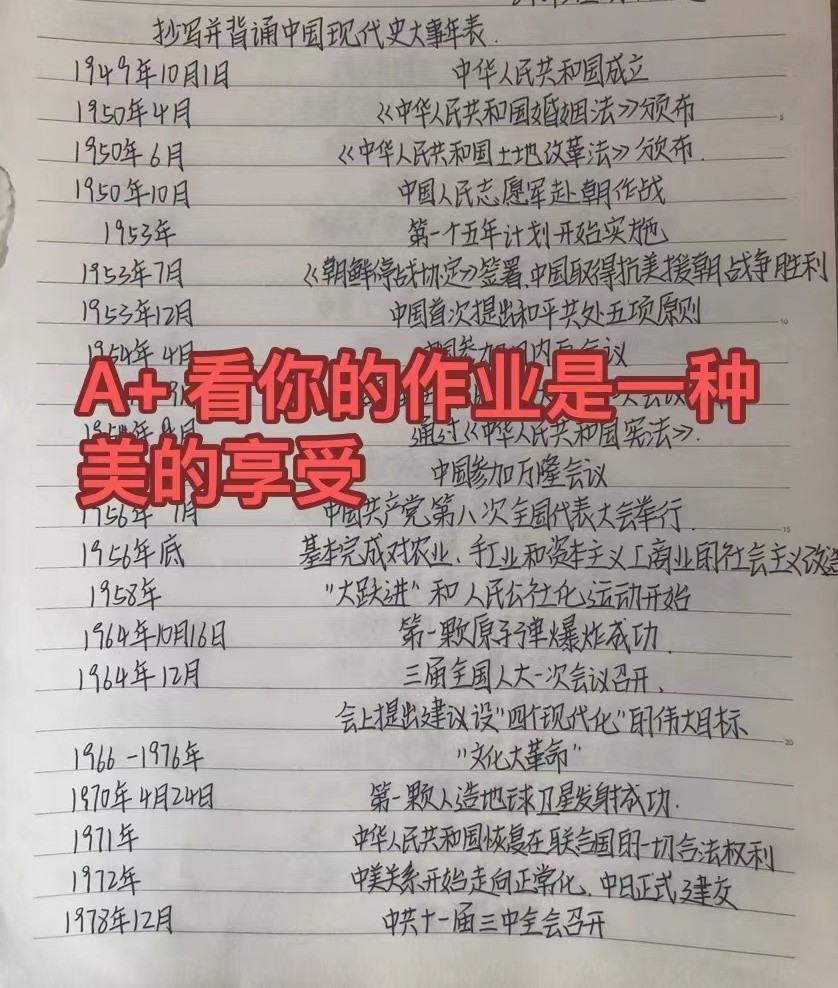 抄写并背诵中国现代史大事年表.
1949年10月1日 中华人民共和国成立
1950年4月 《中华人民共和国婚姻法》颁布
1950年6月 《中华人民共和国土地改革法》颁布.
1950年10月 中国人民志愿军赴朝作战
1953年 第一个五年计划开始实施
1953年7月 《朝鲜停战协定》签署,中国取得抗美援朝战争胜利
1953年12月 中国首次提出和平共处五项原则
10
1954年4月 会议
A+ 看你的作业是一种
美的享受
通过《中华人民共和国宪法》.
中国参加万隆会议
1956年 中国共产党第八次全国代表大会举行.
15
1956年底 基本完成对农业、手工业和资本主义工商业的社会主义改造
1958年 "大跃进"和人民公社化运动开始
1964年10月16日 第一颗原子弹爆炸成功.
1964年12月 三届全国人大一次会议召开,
会上提出建议设"四个现代化"的伟大目标
20
1966-1976年 "文化大革命"
1970年4月24日 第一颗人造地球卫星发射成功.
1971年 中华人民共和国恢复在联合国的一切合法权利
1972年 中美关系开始走向正常化,中日正式建交
1978年12月 中共十一届三中全会召开